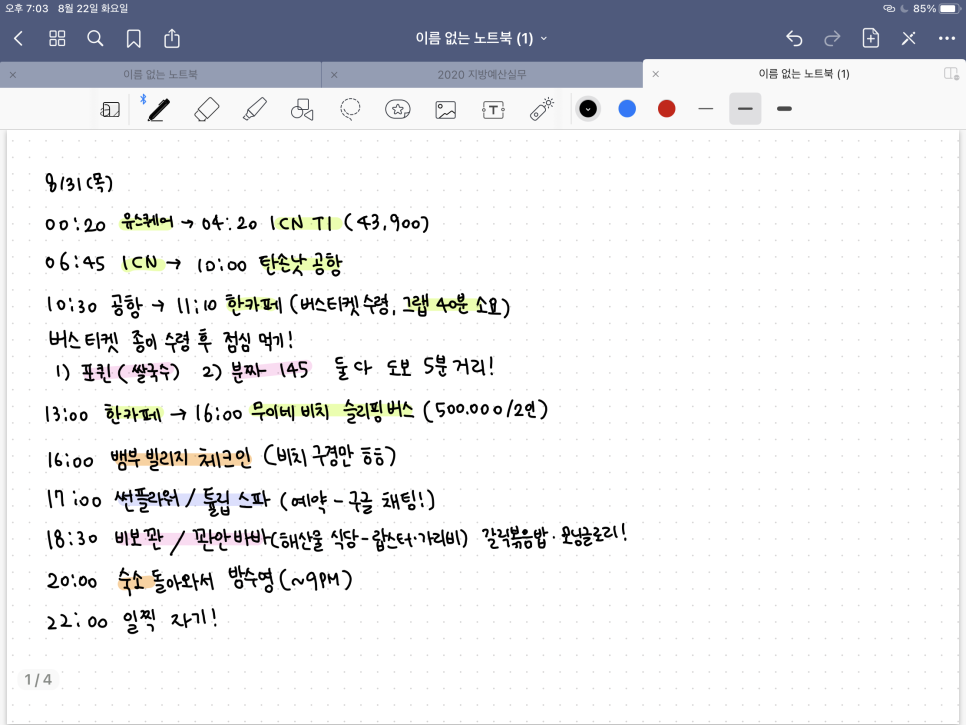 오후 7:03 8월 22일 화요일 85%
이름 없는 노트북 (1)
이름 없는 노트북 2020 지방예산실무 이름 없는 노트북 (1)
8/31(목)
00:20 유스퀘어 → 04:20 ICN T1 (43,900)
06:45 ICN → 10:00 탄손낫 공항
10:30 공항 → 11:10 한카페 (버스티켓 수령, 그랩 40분 소요)
버스티켓 종이 수령 후 점심 먹기!
1) 포퀸 (쌀국수) 2) 분짜 145 둘 다 도보 5분 거리!
13:00 한카페 → 16:00 무이네 비치 슬리핑버스 (500.000/2인)
16:00 뱀부 빌리지 체크인 (비치 구경만 흠흠)
17:00 썬플라워 / 튤립 스파 (예약 - 구글 채팅!)
18:30 비보꽌 / 꽌안바바 (해산물 식당 - 랍스터·가리비) 갈릭볶음밥 · 모닝글로리!
20:00 숙소 돌아와서 밤수영 (~9PM)
22:00 일찍 자기!
1 / 4